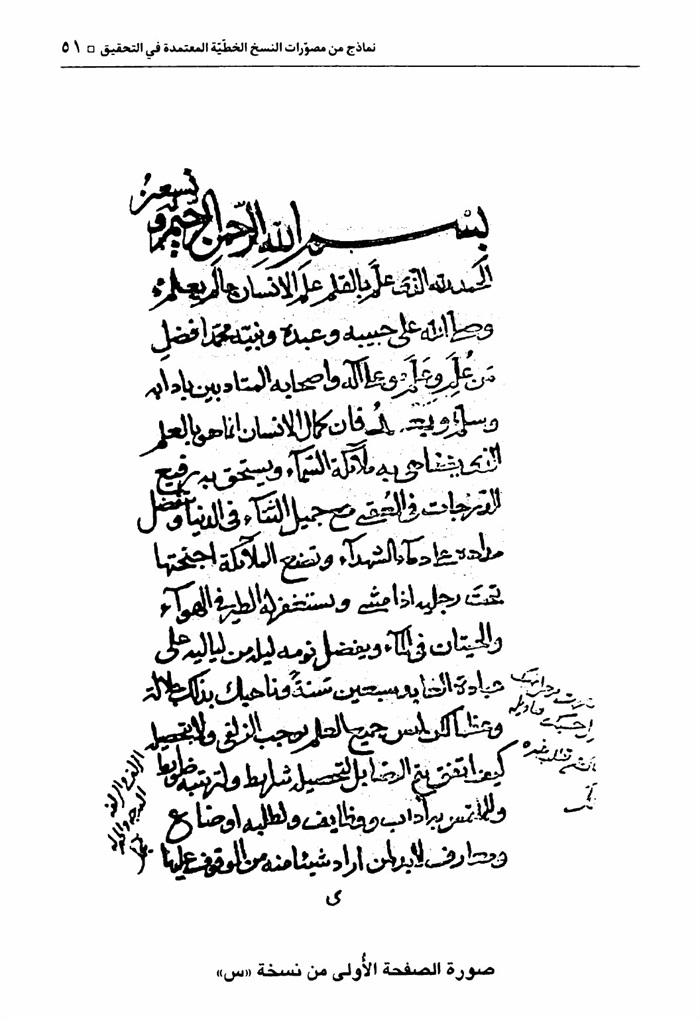 نماذج من مصوّرات النسخ الخطّيّة المعتمدة في التحقيق □ ٥١
بسم الله الرّحمن الرحيم و نستعين
الحمد لله الذى علّم بالقلم علم الانسان مالم يعلم
وصلى الله على حبيبه وعبده ونبيّه محمّد افضل
من عُلِّم وعَلَّم وعلى اله واصحابه المتادبين بادابه
وسلم وبعد فان كمال الانسان انما هو بالعلم
الذى يضاهى به ملائكة السّماء ويستحق به رفيع
الدرجات في العقبى مع جميل الثناء فى الدنيا ويفضل
مداده على دماء الشهداء وتضع الملائكة اجنحتها
تحت رجليه اذا مشى ويستغفر له الطير في الهواء
والحيتان فى الماء ويفضل نومه ليلة من لياليه على
عبادة العابد سبعين سنة وناهيك بذلك جلالة
وعظما لكن ليس جميع العلم يوجب الزلفى ولا تحصيله
كيف اتفق يثمر الرضا بل لتحصيله شرايط ولترتيبه ضوابط
وللملتمس به آداب ووظايف ولطلبه اوضاع
ومعارف لابد لمن اراد شيئا منه من الوقوف عليها
صورة الصفحة الأُولى من نسخة «س»